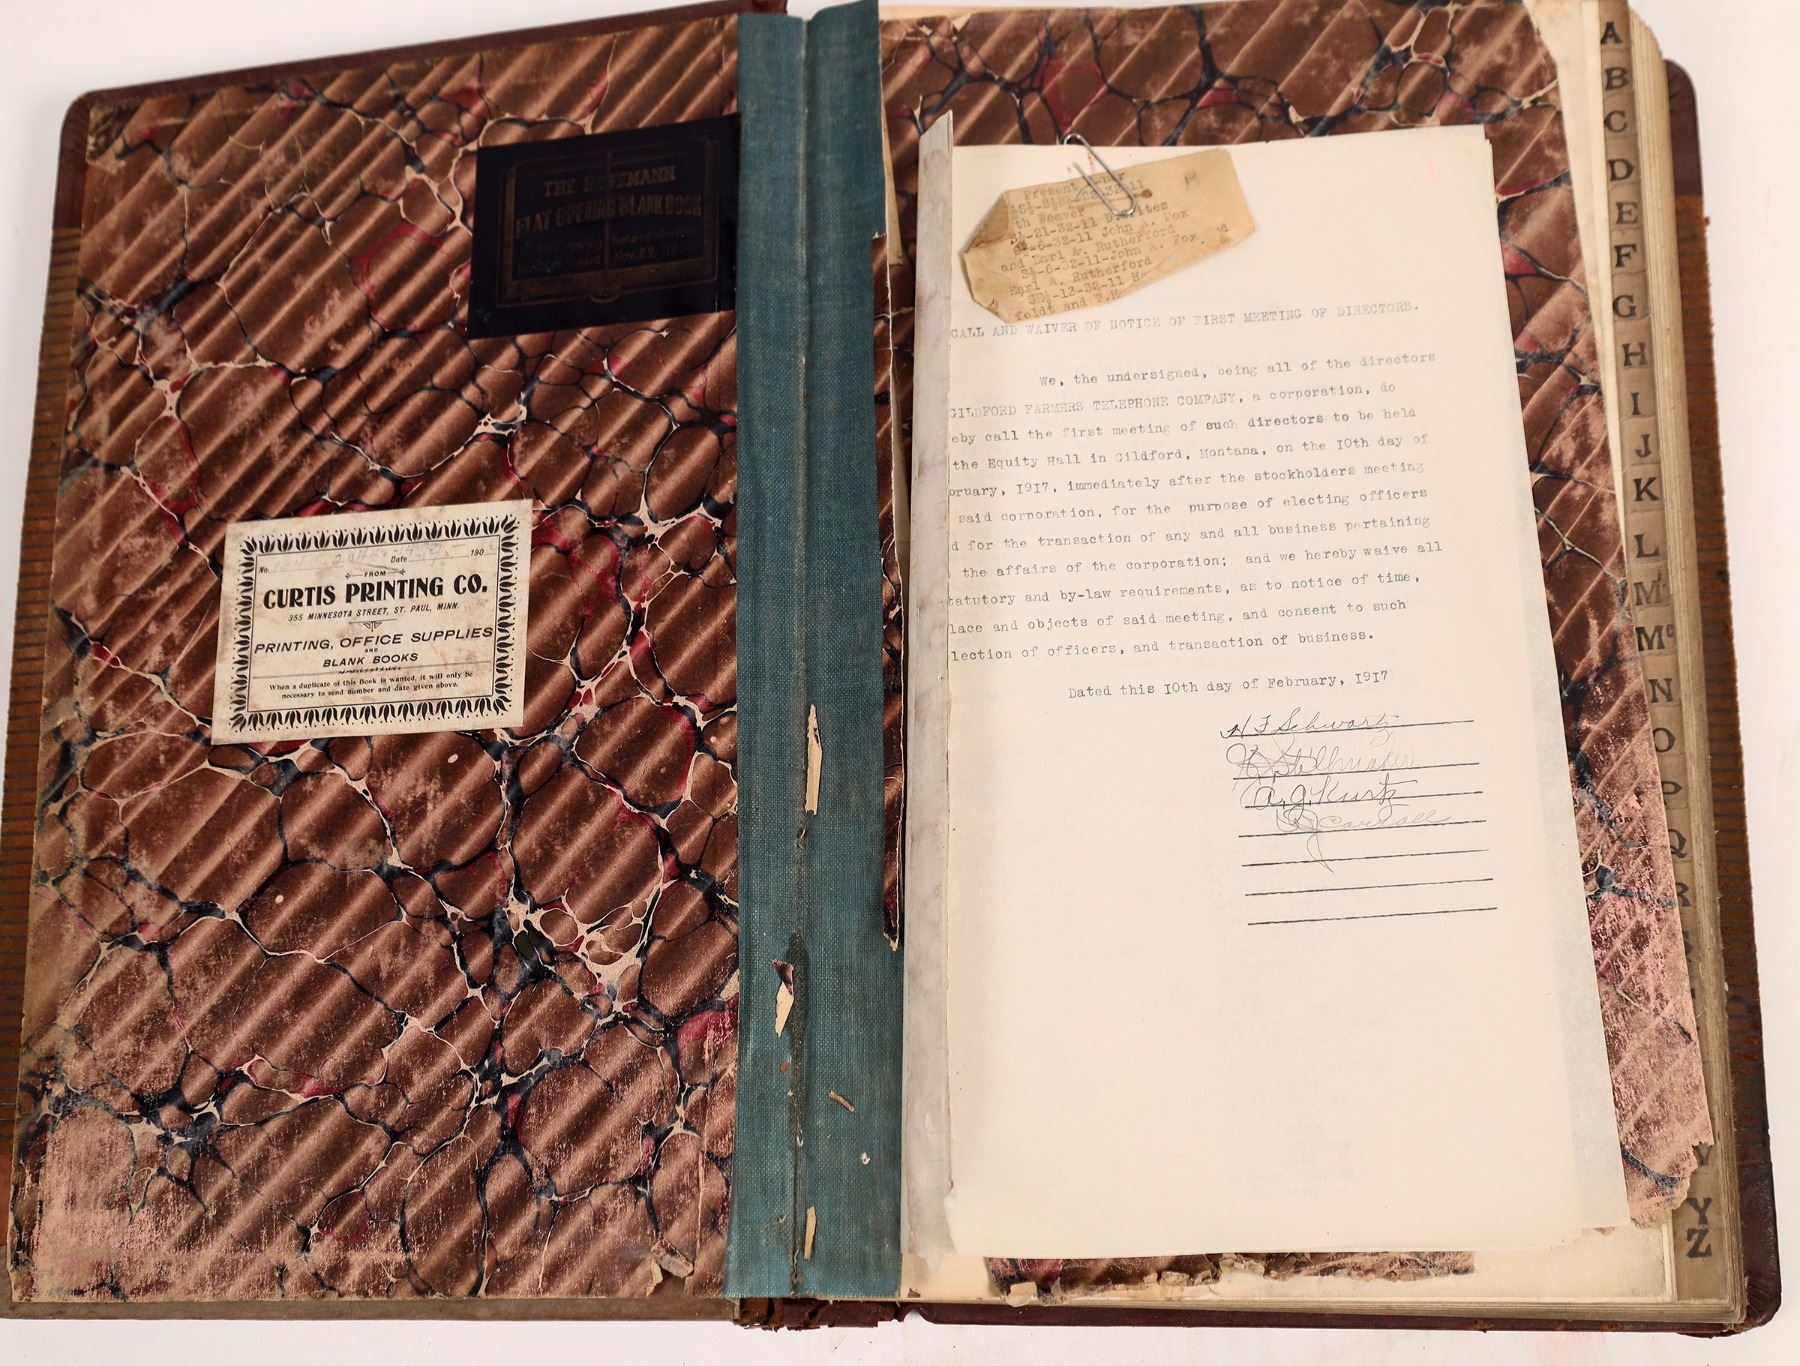 THE HOFFMANN
FLAT OPENING BLANK BOOK
Nov. 29, 1892
No. Date 190
FROM
CURTIS PRINTING CO.
355 MINNESOTA STREET, ST. PAUL, MINN.
PRINTING, OFFICE SUPPLIES
AND
BLANK BOOKS
When a duplicate of this Book is wanted, it will only be
necessary to send number and date given above.
Present
32-11
th Weaver
-21-32-11
-6-32-11 John A. Fox
and Earl A. Rutherford
S½-6-32-11-John A. Fox
Earl A. Rutherford
SE¼-13-32-11
foldt and F.H
CALL AND WAIVER OF NOTICE OF FIRST MEETING OF DIRECTORS.
We, the undersigned, being all of the directors
GILDFORD FARMERS TELEPHONE COMPANY, a corporation, do
eby call the first meeting of such directors to be held
the Equity Hall in Gildford, Montana, on the 10th day of
bruary, 1917, immediately after the stockholders meeting
said corporation, for the purpose of electing officers
d for the transaction of any and all business pertaining
the affairs of the corporation; and we hereby waive all
tatutory and by-law requirements, as to notice of time,
lace and objects of said meeting, and consent to such
lection of officers, and transaction of business.
Dated this 10th day of February, 1917
H F Schwartz
Stellmaker
A. J. Kurtz
A
B
C
D
E
F
G
H
I
J
K
L
M
Mc
N
O
P
Q
R
S
V
Y
Z